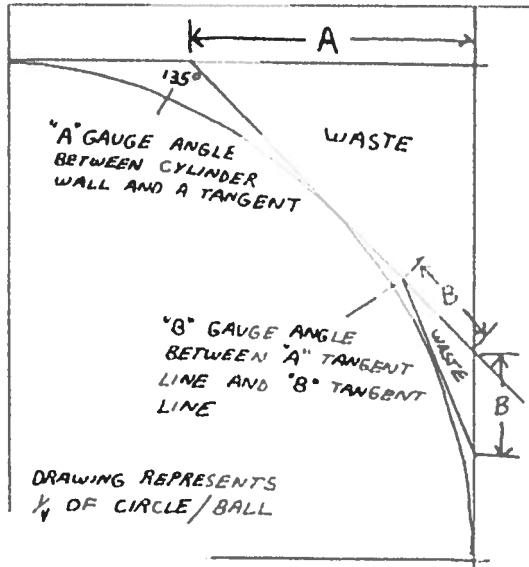 A
135°
"A" GAUGE ANGLE
BETWEEN CYLINDER
WALL AND A TANGENT
WASTE
B
"B" GAUGE ANGLE
BETWEEN "A" TANGENT
LINE AND "B" TANGENT
LINE
WASTE
B
DRAWING REPRESENTS
1/4 OF CIRCLE/BALL